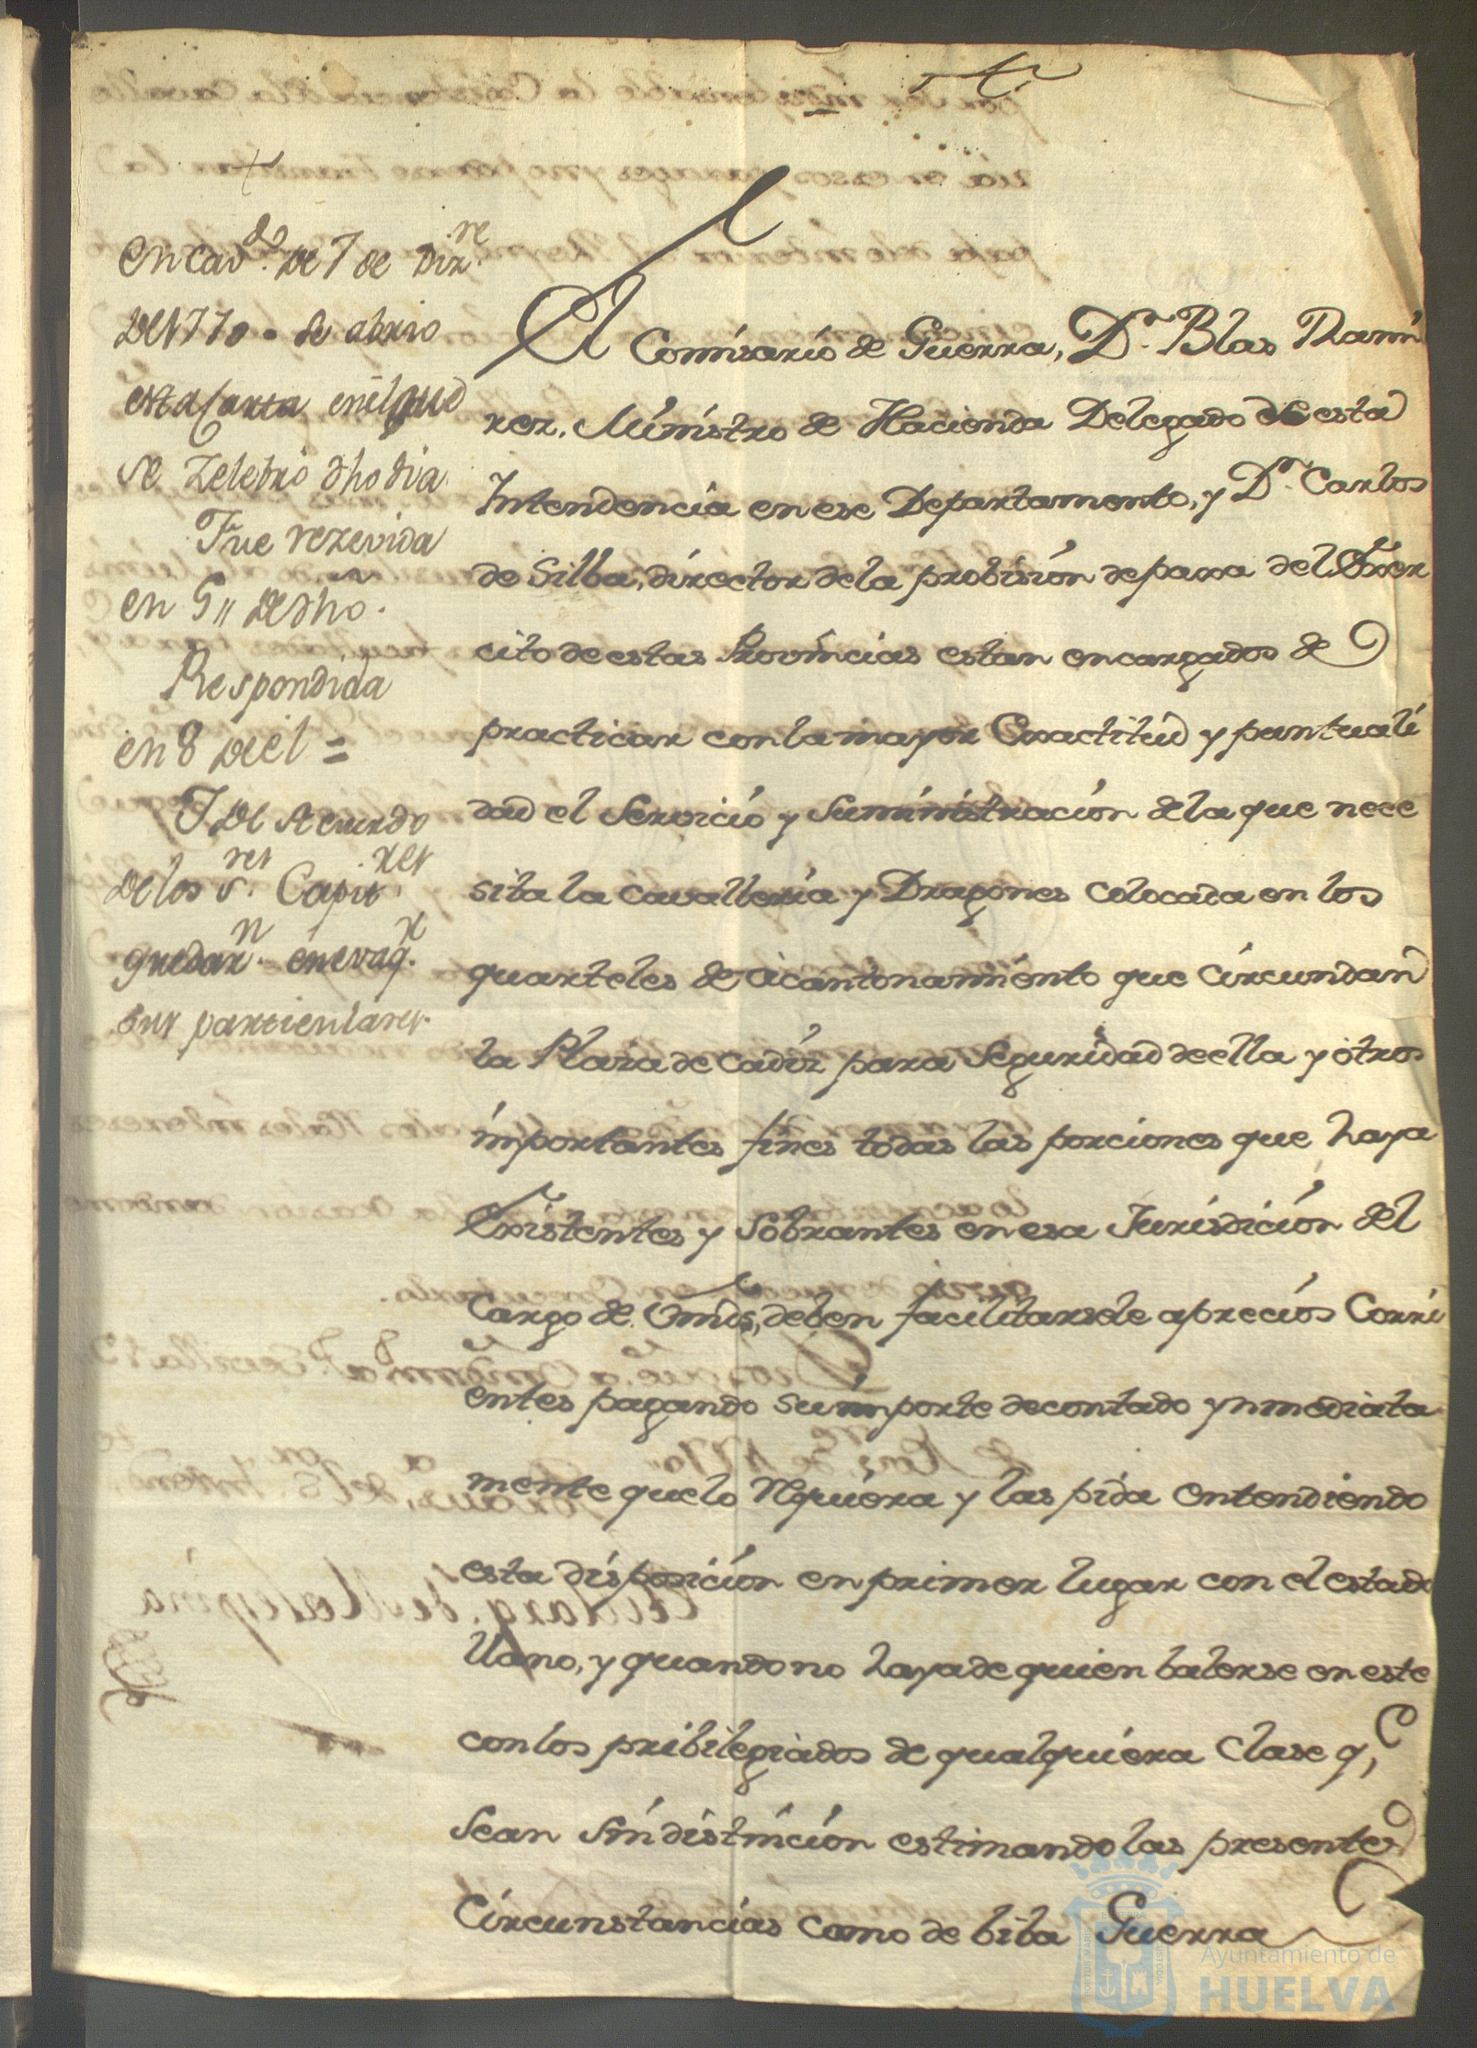 en cav.do de 7 de Diz.re
de 1770. se abrio
esta carta en el que
se zelebró dho dia.
Fue rezevida
en 5,, de dho.
Respondida
en 8 del =
I de Acuerdo
de los S.res Capit.res
quedar.n
sus particulares.
El Comisario de Guerra, D.n Blas Rami
rez, Ministro de Hacienda Delegado de esta
Intendencia en ese Departamento, y D.n Carlos
de Silba, director de la probision de paxa del Exer
cito de estas Provincias estan encargados de
practicar con la mayor Exactitud y puntuali
dad el Servicio y Suministracion de la que nece
sita la cavalleria y Dragones colocada en los
quarteles de acantonamiento que circundan
la Plaza de Cadiz para Seguridad de ella y otros
importantes fines todas las porciones que haya
Existentes y Sobrantes en esa Jurisdicion del
Cargo de Vmds, deben facilitarsele a precios Corri
entes pagando su importe de contado ynmediata
mente que lo Rquiera y las pida entendiendo
esta disposicion en primer lugar con el estado
llano, y quando no haya de quien balerse en este
con los pribilegiados de qualquiera Clase q.e
Sean Sin distincion estimando las presentes
Circunstancias como de biba Guerra
Ayuntamiento de
HUELVA